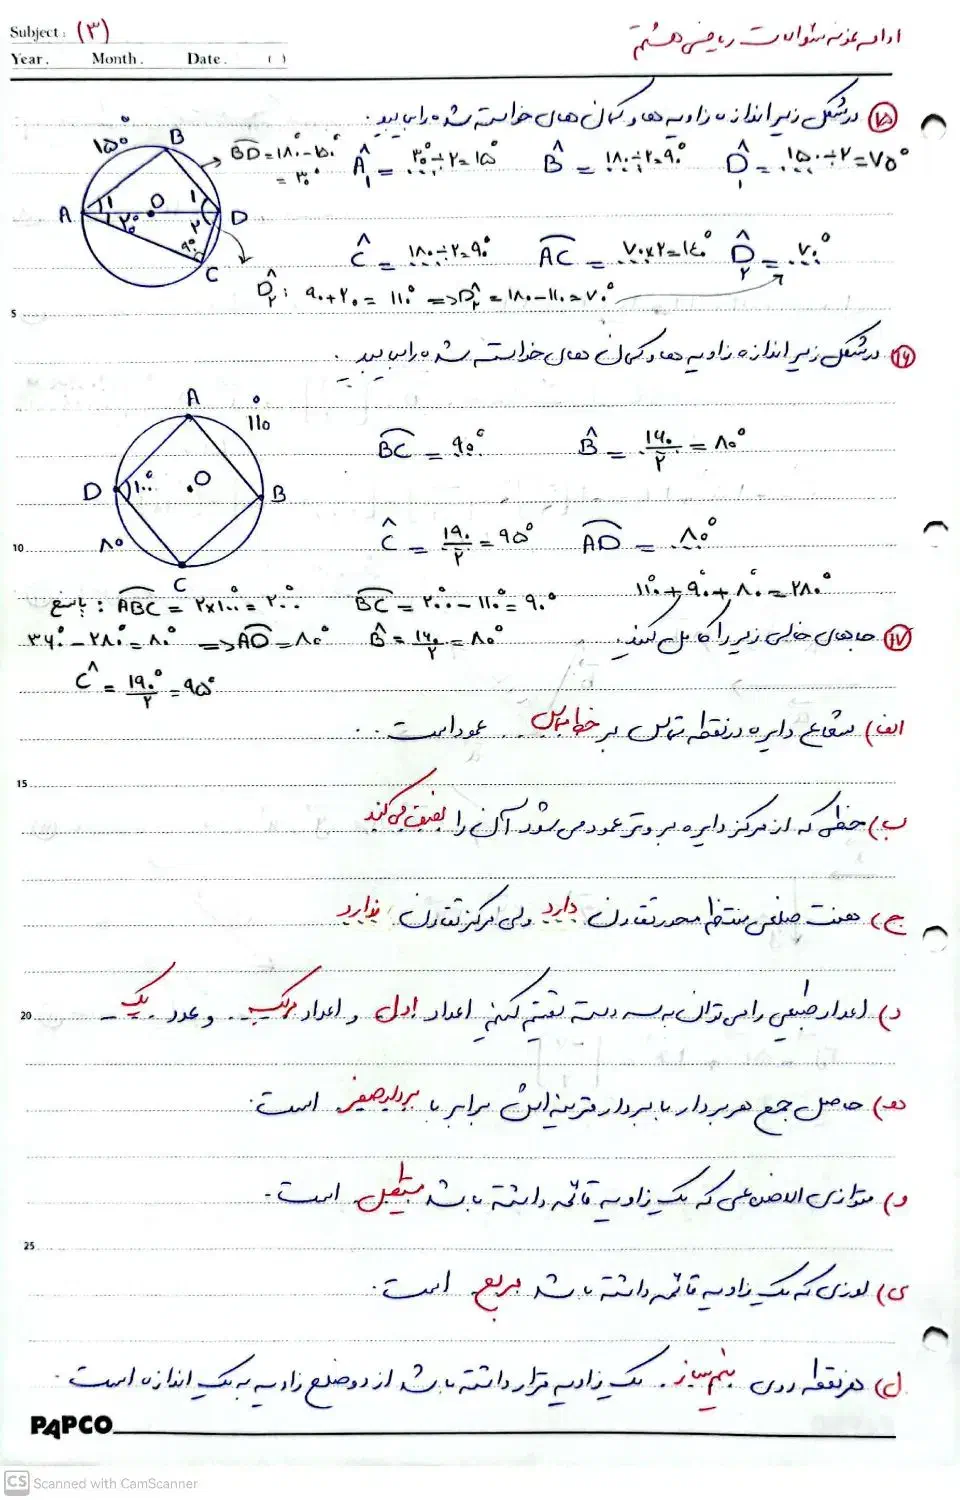 Subject: (۳)
ادامه نمونه سوالات ریاضی هشتم
Year. Month. Date. ( )
۱۵ در شکل زیر اندازه زاویه ها و کمان های خواسته شده را بیابید.
۱۵۰° B
BD = ۱۸۰° - ۱۵۰° = ۳۰°
Â۱ = ۳۰° ÷ ۲ = ۱۵° B̂ = ۱۸۰ ÷ ۲ = ۹۰° D̂۱ = ۱۵۰ ÷ ۲ = ۷۵°
A ۱ ۲۰° O ۱ ۲ D
۹۰° C
Ĉ = ۱۸۰ ÷ ۲ = ۹۰° AC = ۷۰×۲ = ۱۴۰° D̂۲ = ۷۰°
D̂۲ : ۹۰ + ۲۰ = ۱۱۰° => D̂۲ = ۱۸۰ - ۱۱۰ = ۷۰°
5
۱۶ در شکل زیر اندازه زاویه ها و کمان های خواسته شده را بیابید.
A ۱۱۰°
BC = ۹۰° B̂ = ۱۶۰/۲ = ۸۰°
D ۱۰۰° O B
10 ۸۰ C
Ĉ = ۱۹۰/۲ = ۹۵° AD = ۸۰°
پاسخ : ABC = ۲×۱۰۰° = ۲۰۰° BC = ۲۰۰° - ۱۱۰° = ۹۰° ۱۱۰° + ۹۰° + ۸۰° = ۲۸۰°
۳۶۰° - ۲۸۰° = ۸۰° => AD = ۸۰° B̂ = ۱۶۰/۲ = ۸۰°
۱۷ جاهای خالی زیر را کامل کنید.
Ĉ = ۱۹۰°/۲ = ۹۵°
الف) شعاع دایره در نقطه تماس بر خط مماس عمود است.
15
ب) خطی که از مرکز دایره بر وتر عمود می شود آن را نصف می کند
ج) هفت ضلعی منتظم محور تقارن دارد ولی مرکز تقارن ندارد
20
د) اعداد طبیعی را می توان به سه دسته تقسیم کنیم اعداد اول و اعداد مرکب و عدد یک
هـ) حاصل جمع هر بردار با بردار قرینه اش برابر با بردار صفر است.
و) متوازی الاضلاعی که یک زاویه قائمه داشته باشد مستطیل است.
25
ی) لوزی که یک زاویه قائمه داشته باشد مربع است.
ل) هر نقطه روی نیم ساز یک زاویه قرار داشته باشد از دو ضلع زاویه به یک اندازه است.
PAPCO
CS Scanned with CamScanner